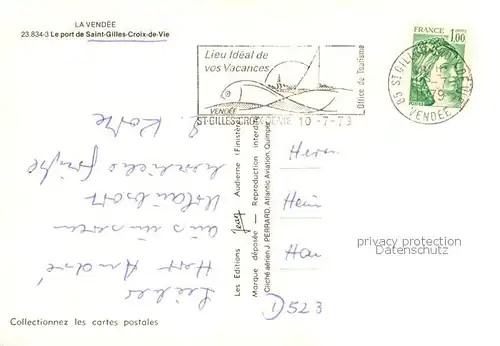 LA VENDÉE
23.834-3 Le port de Saint-Gilles-Croix-de-Vie
Lieu Idéal de
vos Vacances
VENDÉE
ST-GILLES-CROIX-DE-VIE 10-7-79
Office de Tourisme
FRANCE
1,00
POSTES
85 ST GILLES CROIX DE VIE
VENDÉE
79
Lieber
Herr André
aus unserem
Urlaubsort
herzliche Grüße
Les Editions Jean Audierne (Finistère)
Marque déposée — Reproduction interdite
Cliché aérien J. PERRARD, Atlantic Aviation, Quimper
Herrn
D 523
privacy protection
Datenschutz
Collectionnez les cartes postales